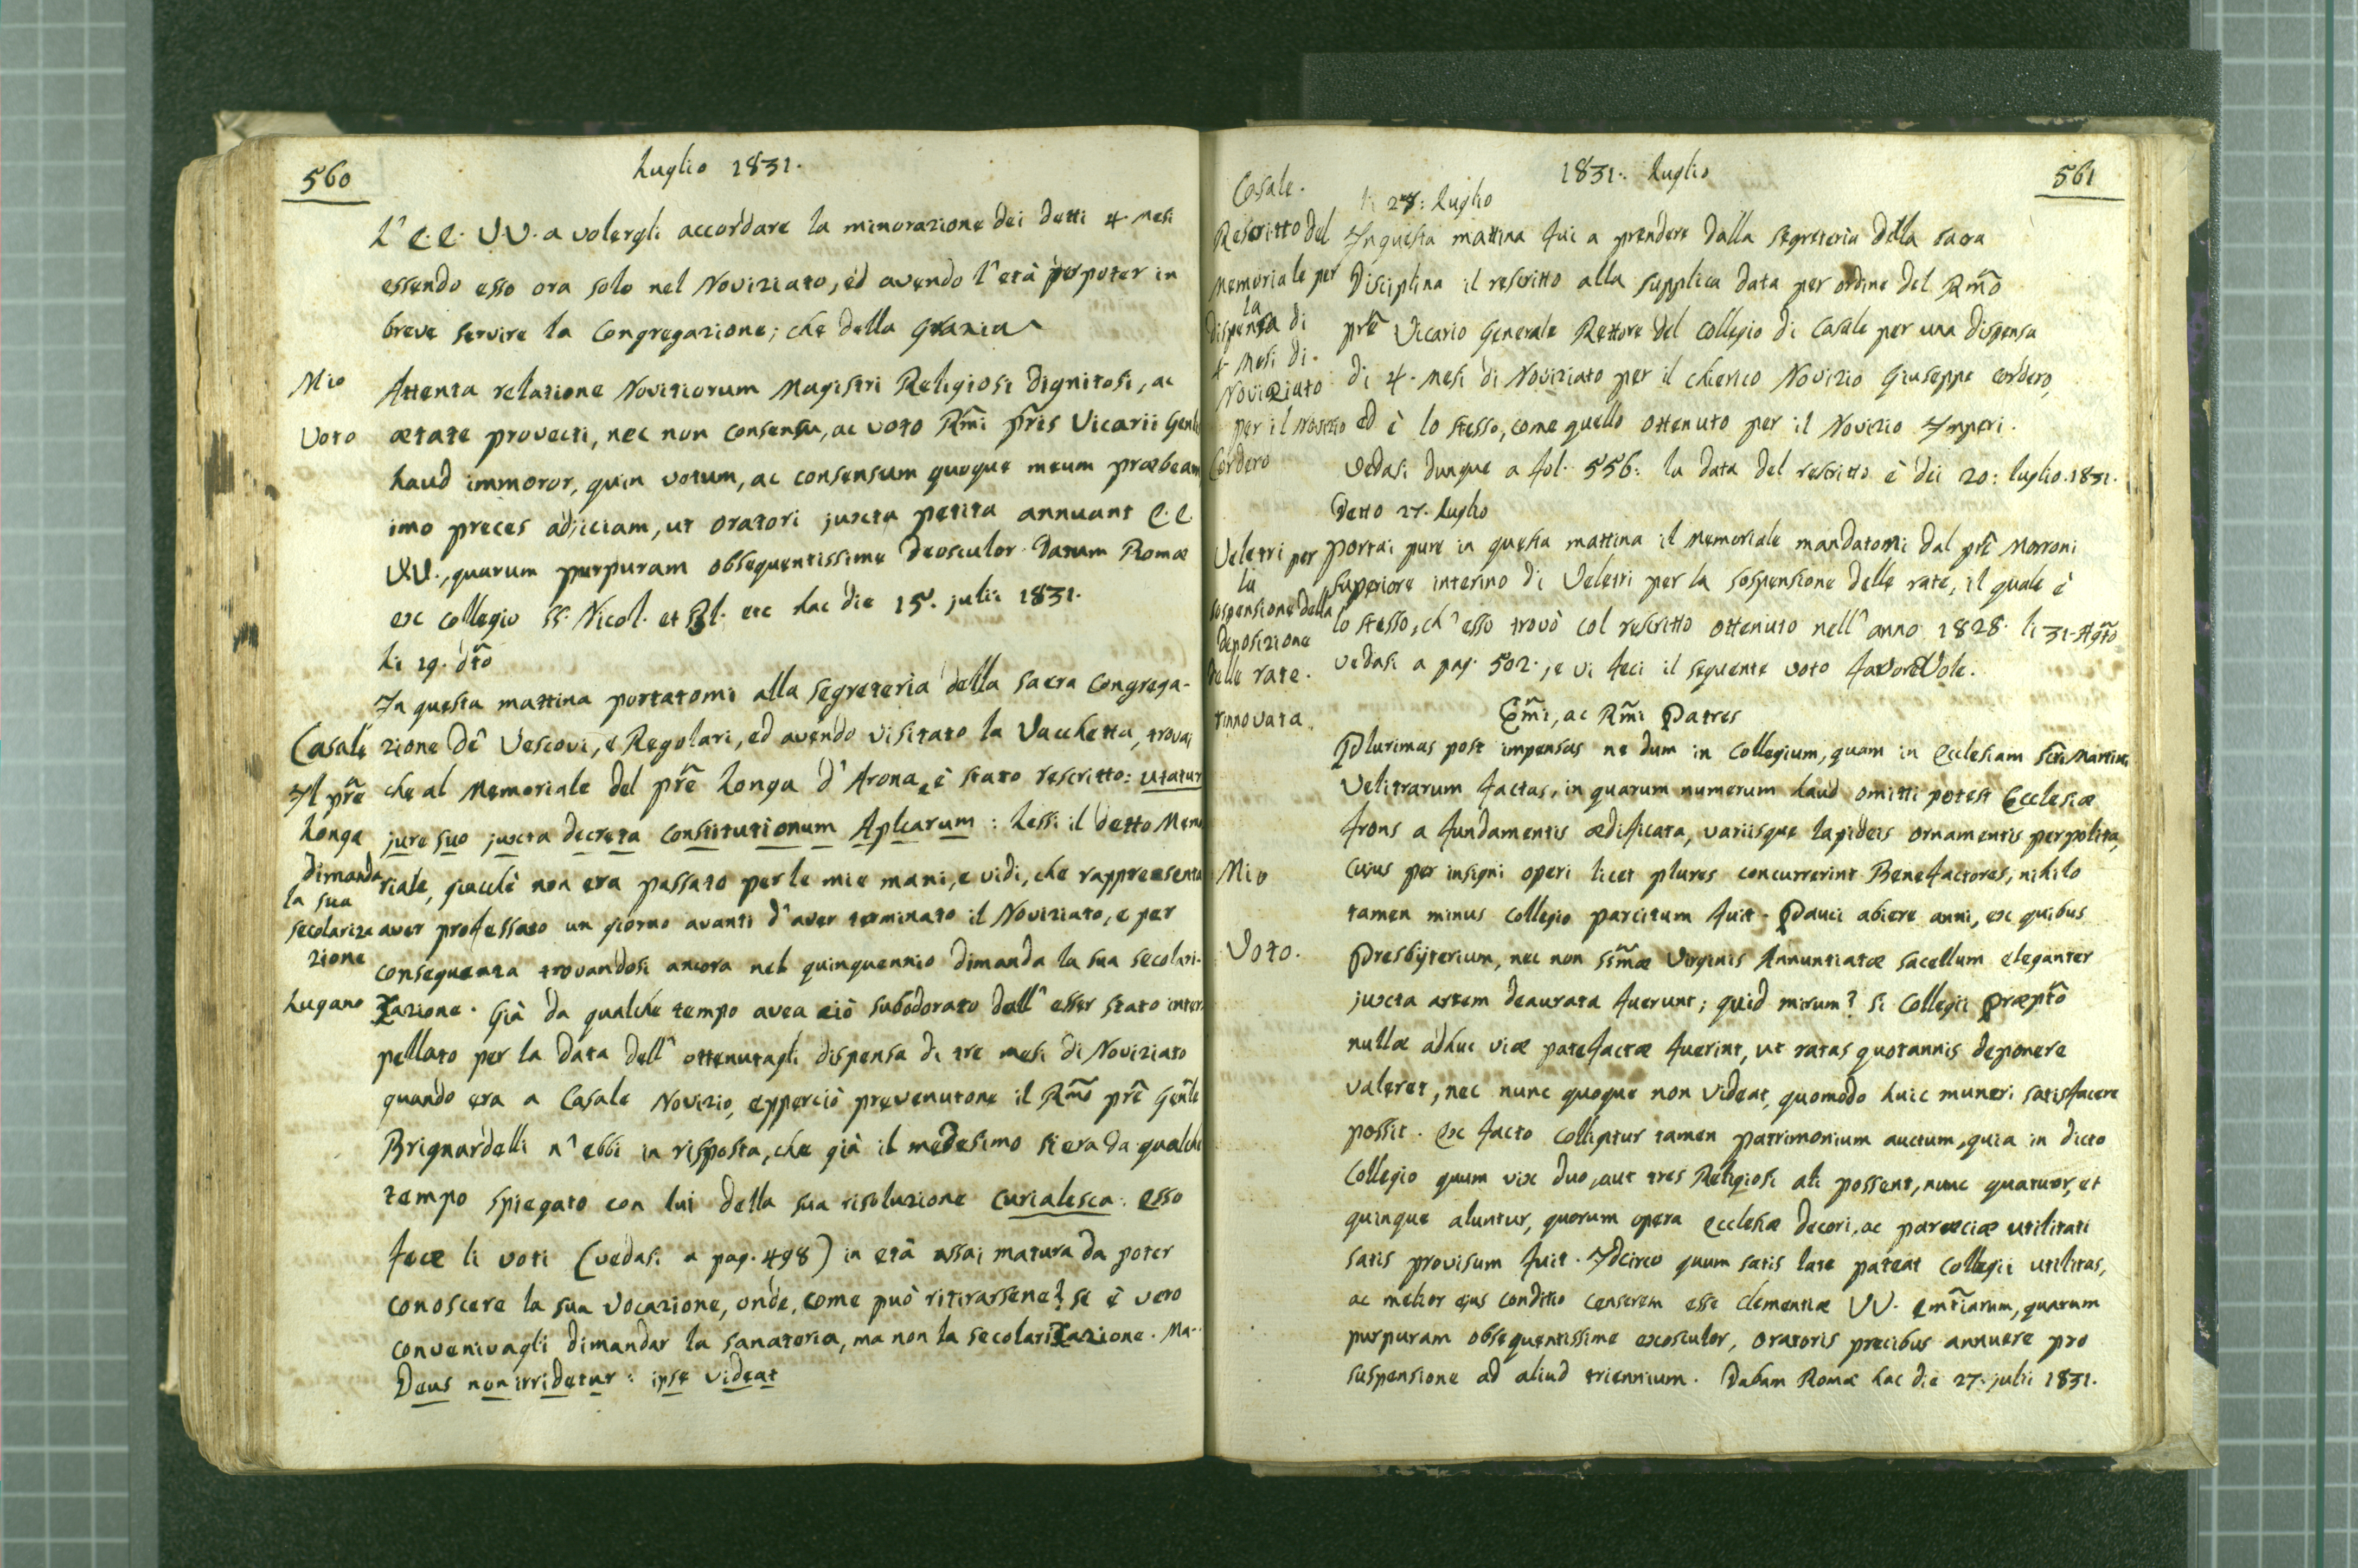 560
Luglio 1831.
L'E.E. V.V. a volergli accordare la minorazione dei detti 4. mesi
essendo esso ora solo nel Noviziato, ed avendo l'età per poter in
breve servire la Congregazione; che della Grazia
Mio
Voto
Attenta relatione Novitiorum Magistri Religiosi dignitosi, ac
ætate provecti, nec non consensu, ac voto Rm̃i pr̃is Vicarii Genlis
haud immoror, quin votum, ac consensum quoque meum præbeam
imo preces adjiciam, ut oratori juxta petita annuant E.E.
VV., quarum purpuram obsequentissime deosculor. Datum Romæ
ex Collegio SS. Nicol. et Bl. etc hac die 15. julii 1831.
Li 19. dt̃o
In questa mattina portatomi alla segreteria della sacra Congrega-
Casale
Il pr̃e
Longa
dimanda
la sua
secolariza
zione
Lugano
zione de' Vescovi, e Regolari, ed avendo visitato la Vacchetta, trovai
che al Memoriale del pr̃e Longa d'Arona, è stato rescritto: utatur
jure suo juxta decreta constitutionum Aplcarum: Lessi il detto Memo
riale, giacchè non era passato per le mie mani, e vidi, che rappresenta
aver professato un giorno avanti d'aver terminato il Noviziato, e per
conseguenza trovandosi ancora nel quinquennio dimanda la sua secolari-
zazione. Già da qualche tempo avea ciò subodorato dall'esser stato inter
pellato per la data dell'ottenutagli dispensa di tre mesi di Noviziato
quando era a Casale Novizio, epperciò prevenutone il Rm̃o pr̃e Gen̄le
Brignardelli n'ebbi in risposta, che già il medesimo si era da qualche
tempo spiegato con lui della sua risoluzione curialesca: esso
fece li voti (vedasi a pag. 498) in età assai matura da poter
conoscere la sua vocazione, onde, come può ritirarsene? se è vero
convenivagli dimandar la sanatoria, ma non la secolarizazione. Ma-
Deus non irridetur: ipse videat
1831. Luglio
561
Casale.
Rescritto del
Memoriale per
la
dispensa di
4. Mesi di
Noviziato
per il Novizio
Cordero
li 27: Luglio
In questa mattina fui a prendere dalla segreteria della sacra
Disciplina il rescritto alla supplica data per ordine del Rm̃o
pr̃e Vicario Generale Rettore del Collegio di Casale per una dispensa
di 4. mesi di Noviziato per il chierico Novizio Giuseppe Cordero,
ed è lo stesso, come quello ottenuto per il Novizio Imperi.
Vedasi dunque a fol. 556: la data del rescritto è dei 20: luglio. 1831.
Detto 27. Luglio
Veletri per
la
sospensione della
deposizione
delle rate.
rinnovata.
Portai pure in questa mattina il Memoriale mandatomi dal pr̃e Morroni
Superiore interino di Veletri per la sospensione delle rate, il quale è
lo stesso, ch'esso trovò col rescritto ottenuto nell'anno 1828. li 31. Agt̃o
vedasi a pag. 502., e vi feci il seguente voto favorevole.
Em̃i, ac Rm̃i Patres
Mio
Voto.
Plurimas post impensas ne dum in Collegium, quam in Ecclesiam Sc̃ti Martini
Velitrarum factas, in quarum numerum haud omitti potest Ecclesiæ
frons a fundamentis ædificata, variisque lapideis ornamentis perpolita,
cujus per insigni operi licet plures concurrerint Benefactores, nihilo
tamen minus Collegio parcitum fuit. Pauci abiere anni, ex quibus
Presbyterium, nec non SSm̃æ Virginis Annuntiatæ sacellum eleganter
juxta artem deaurata fuerunt; quid mirum? si Collegii Præpt̃o
nullæ adhuc viæ patefactæ fuerint, ut ratas quotannis deponere
valeret, nec nunc quoque non videat, quomodo huic muneri satisfacere
possit. Ex facto colligitur tamen patrimonium auctum, quia in dicto
Collegio quum vix duo, aut tres Religiosi ali possent, nunc quatuor, et
quinque aluntur, quorum opera Ecclesiæ decori, ac parœciæ utilitati
satis provisum fuit. Idcirco quum satis late pateat Collegii utilitas,
ac melior ejus conditio censerem esse clementiæ VV. Emt̃iarum, quarum
purpuram obsequentissime exosculor, oratoris precibus annuere pro
suspensione ad aliud triennium. Dabam Romæ hac die 27. julii 1831.